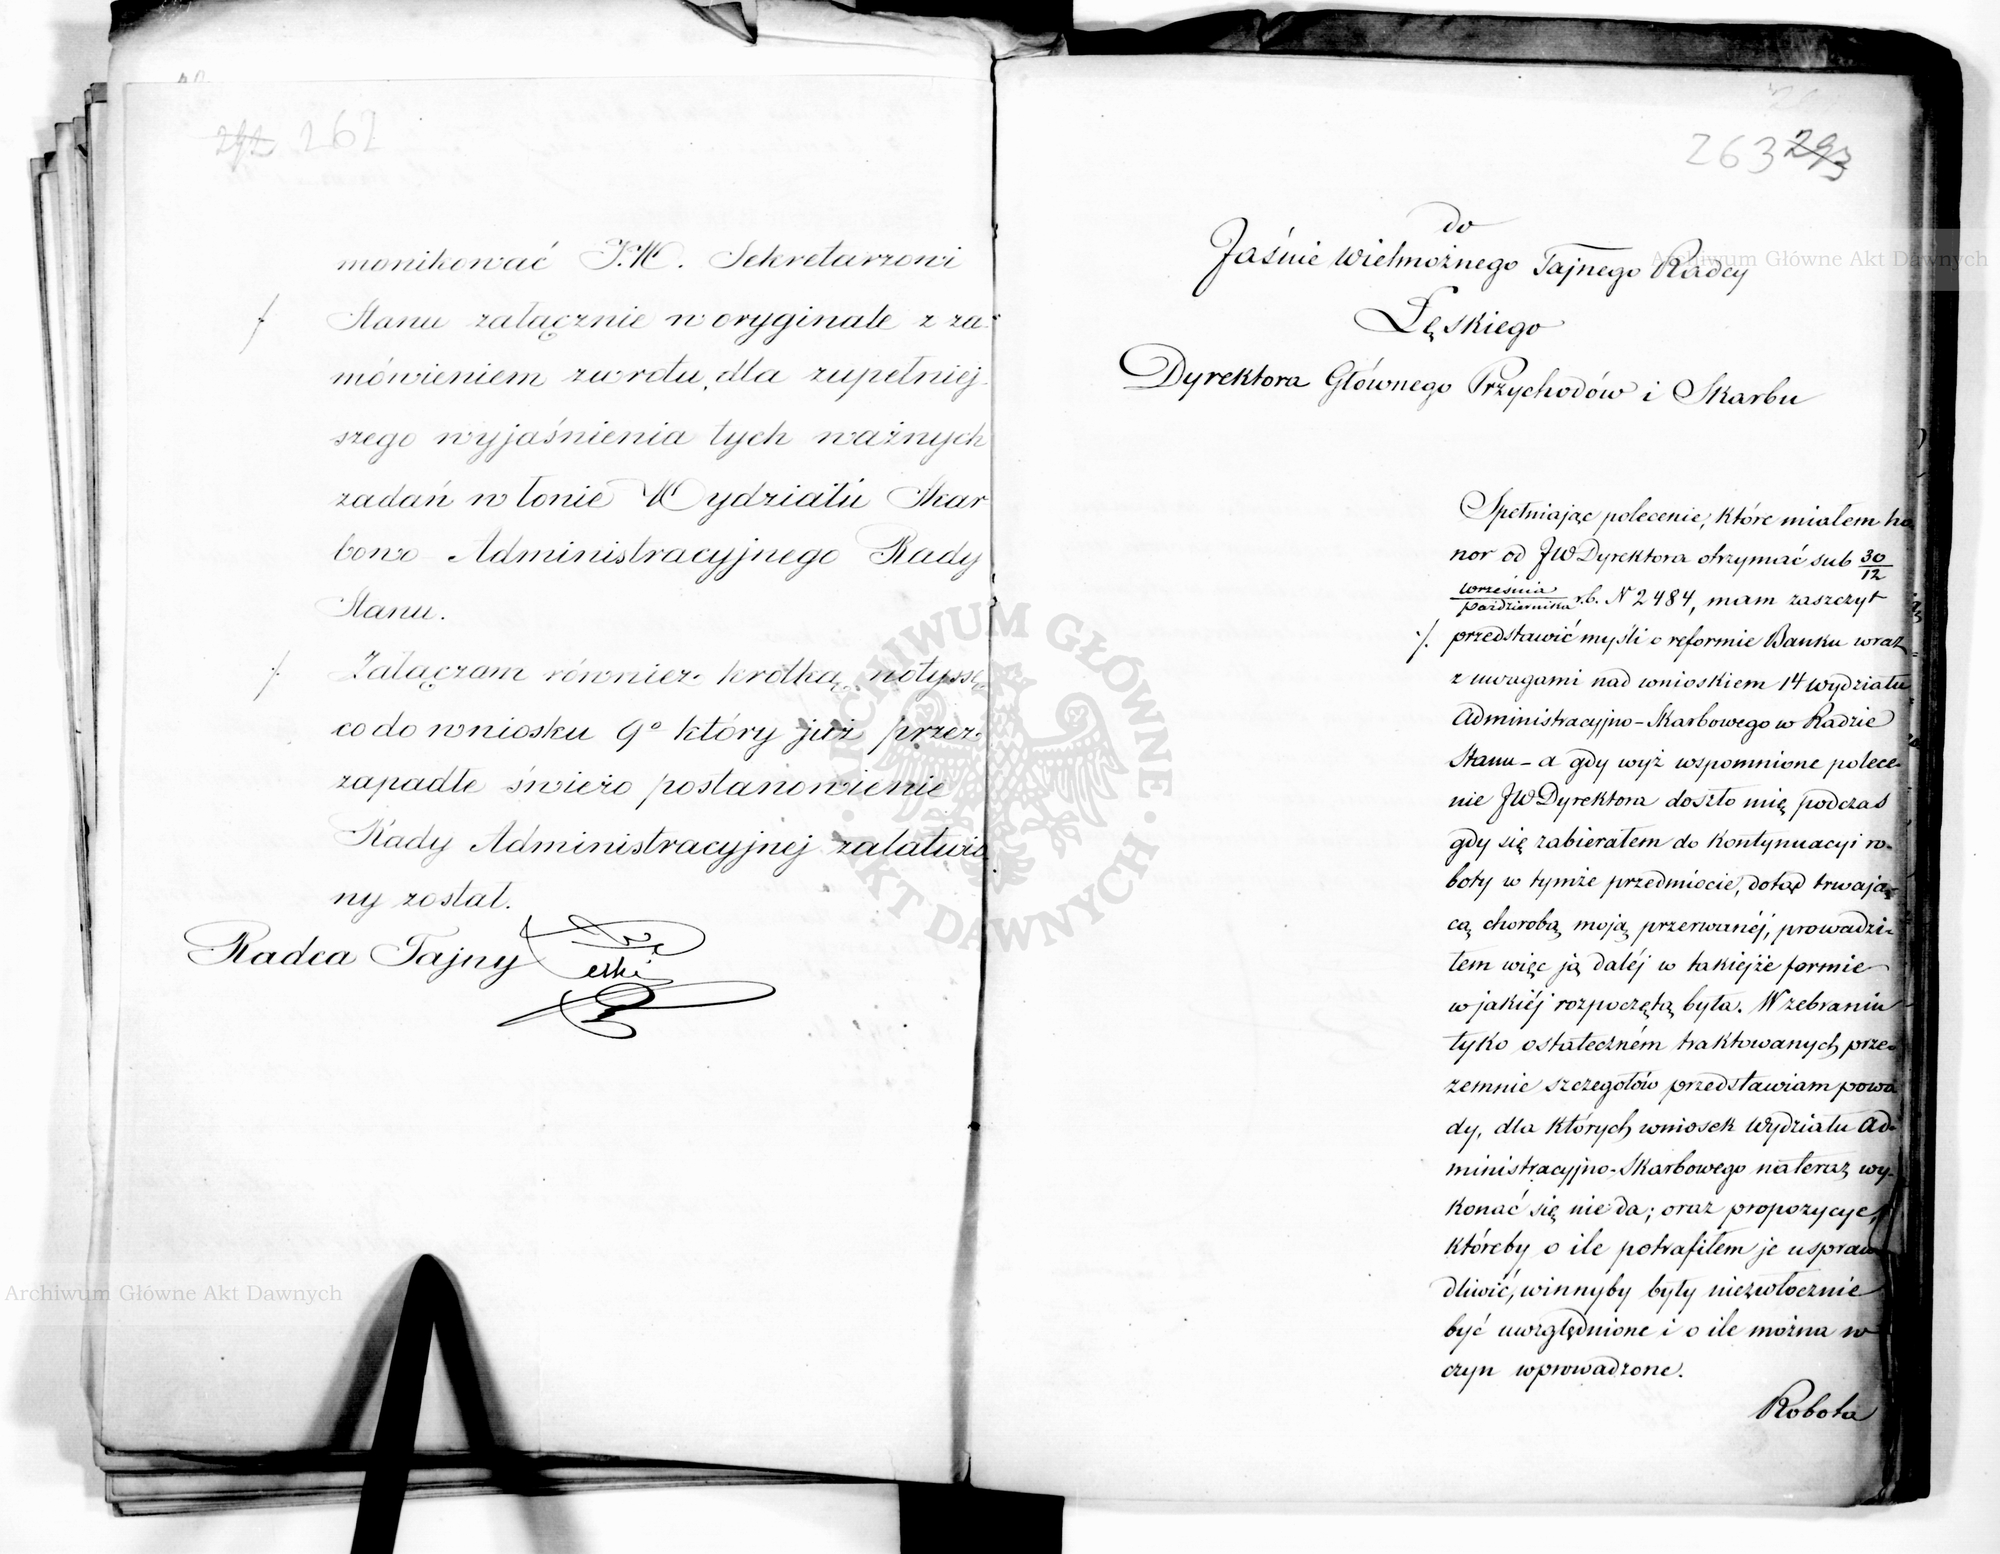 292 262
monikować J.W. Sekretarzowi
Stanu załącznie w oryginale z za-
mówieniem zwrotu, dla zupełniej
szego wyjaśnienia tych ważnych
zadań w łonie Wydziału Skar
bowo Administracyjnego Rady
Stanu.
Załączam również krótką notyssę
co do wniosku 9º który już przez
zapadłe świeżo postanowienie
Rady Administracyjnej załatwio
ny został.
Radca Tajny Łęski
263 293
do
Jaśnie Wielmożnego Tajnego Radcy
Łęskiego
Dyrektora Głównego Przychodów i Skarbu
Spełniając polecenie, które miałem ho
nor od JW Dyrektora otrzymać sub 30/12
września/października r.b. N 2484, mam zaszczyt
./. przedstawić myśli o reformie Banku wraz
z uwagami nad wnioskiem 14 wydziału
Administracyjno-Skarbowego w Radzie
Stanu – a gdy wyż wspomnione polece-
nie JW Dyrektora doszło mię podczas
gdy się zabierałem do kontynuacyi ro-
boty w tymże przedmiocie, dotąd trwają-
cą chorobą moją przerwanéj, prowadzi-
łem więc ją daléj w takiejże formie
w jakiéj rozpoczętą była. W zebraniu
tylko ostateczném traktowanych prze-
zemnie szczegółów przedstawiam powo
dy, dla których wniosek Wydziału Ad-
ministracyjno-Skarbowego nateraz wy-
konać się nie da; oraz propozycye,
któreby o ile potrafiłem je usprawie
dliwić, winnyby były niezwłocznie
być uwzględnione i o ile można w
czyn wprowadzone.
Robota
Archiwum Główne Akt Dawnych
Archiwum Główne Akt Dawnych
ARCHIWUM GŁÓWNE · AKT DAWNYCH ·